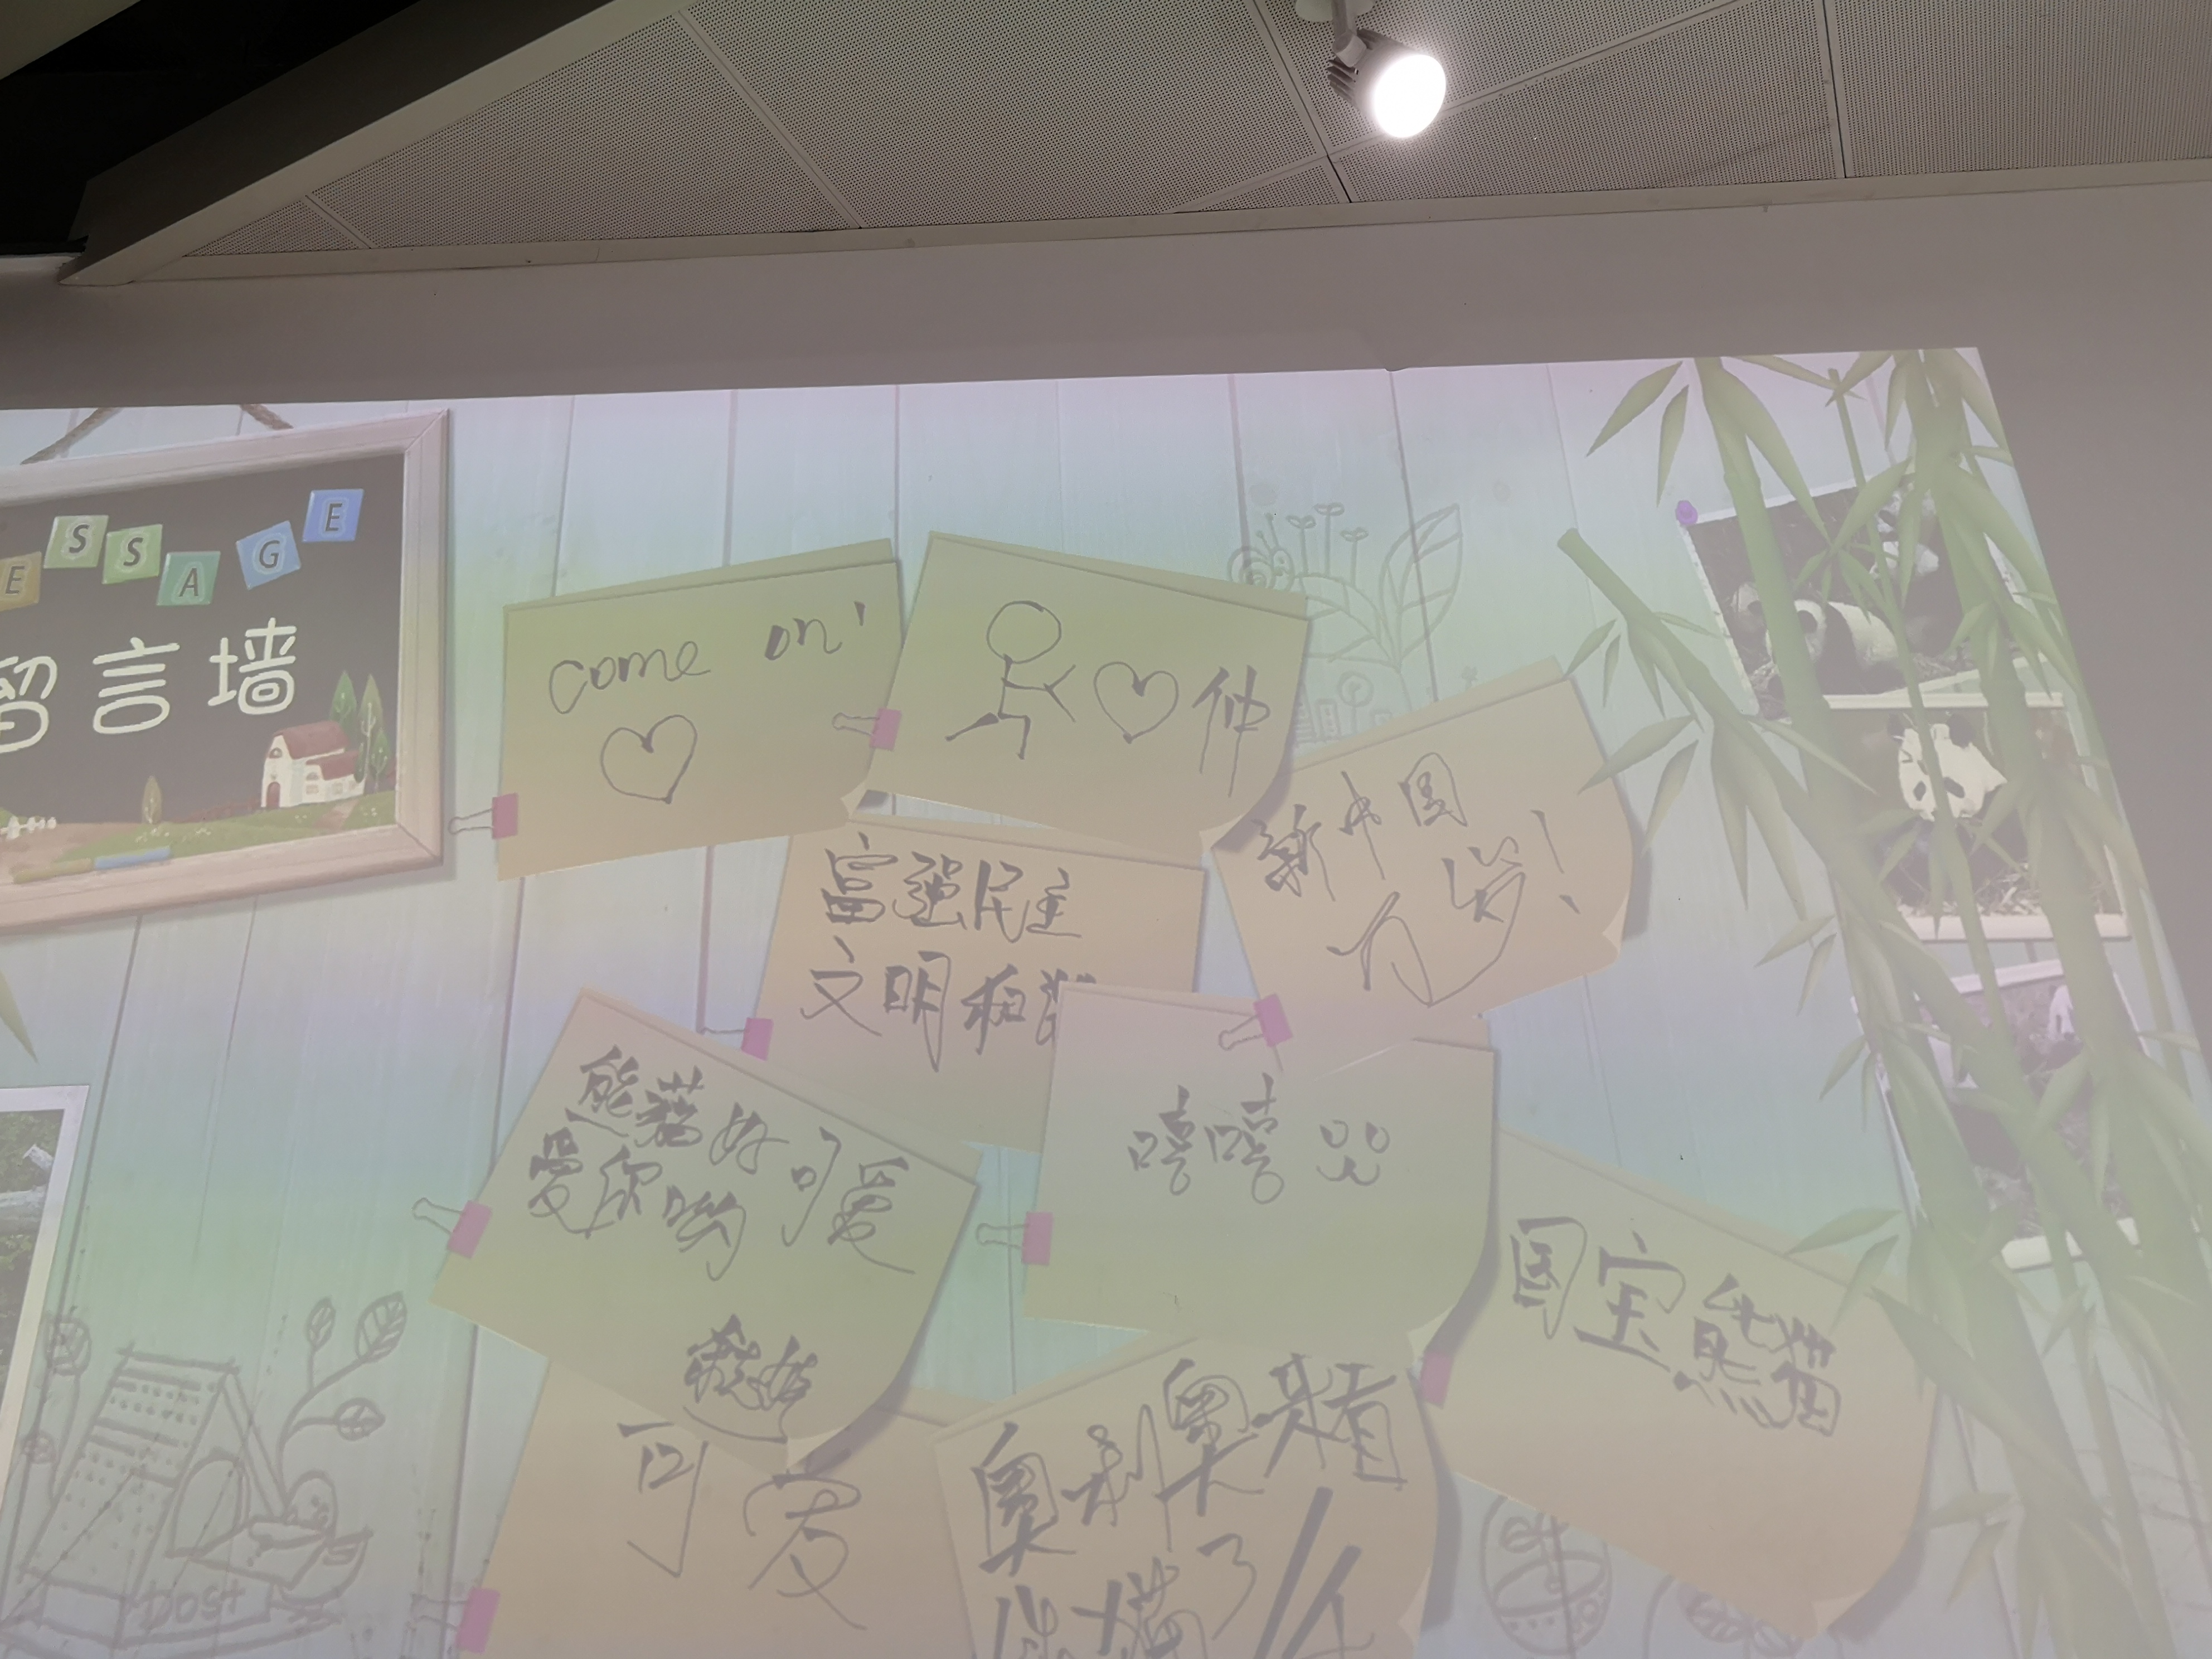 ESSAGE
留言墙
come on!
仲
新中国
万岁!
富强民主
文明和谐
熊猫好可爱
爱你哟
嘻嘻
国宝熊猫
可爱
奥利奥
post